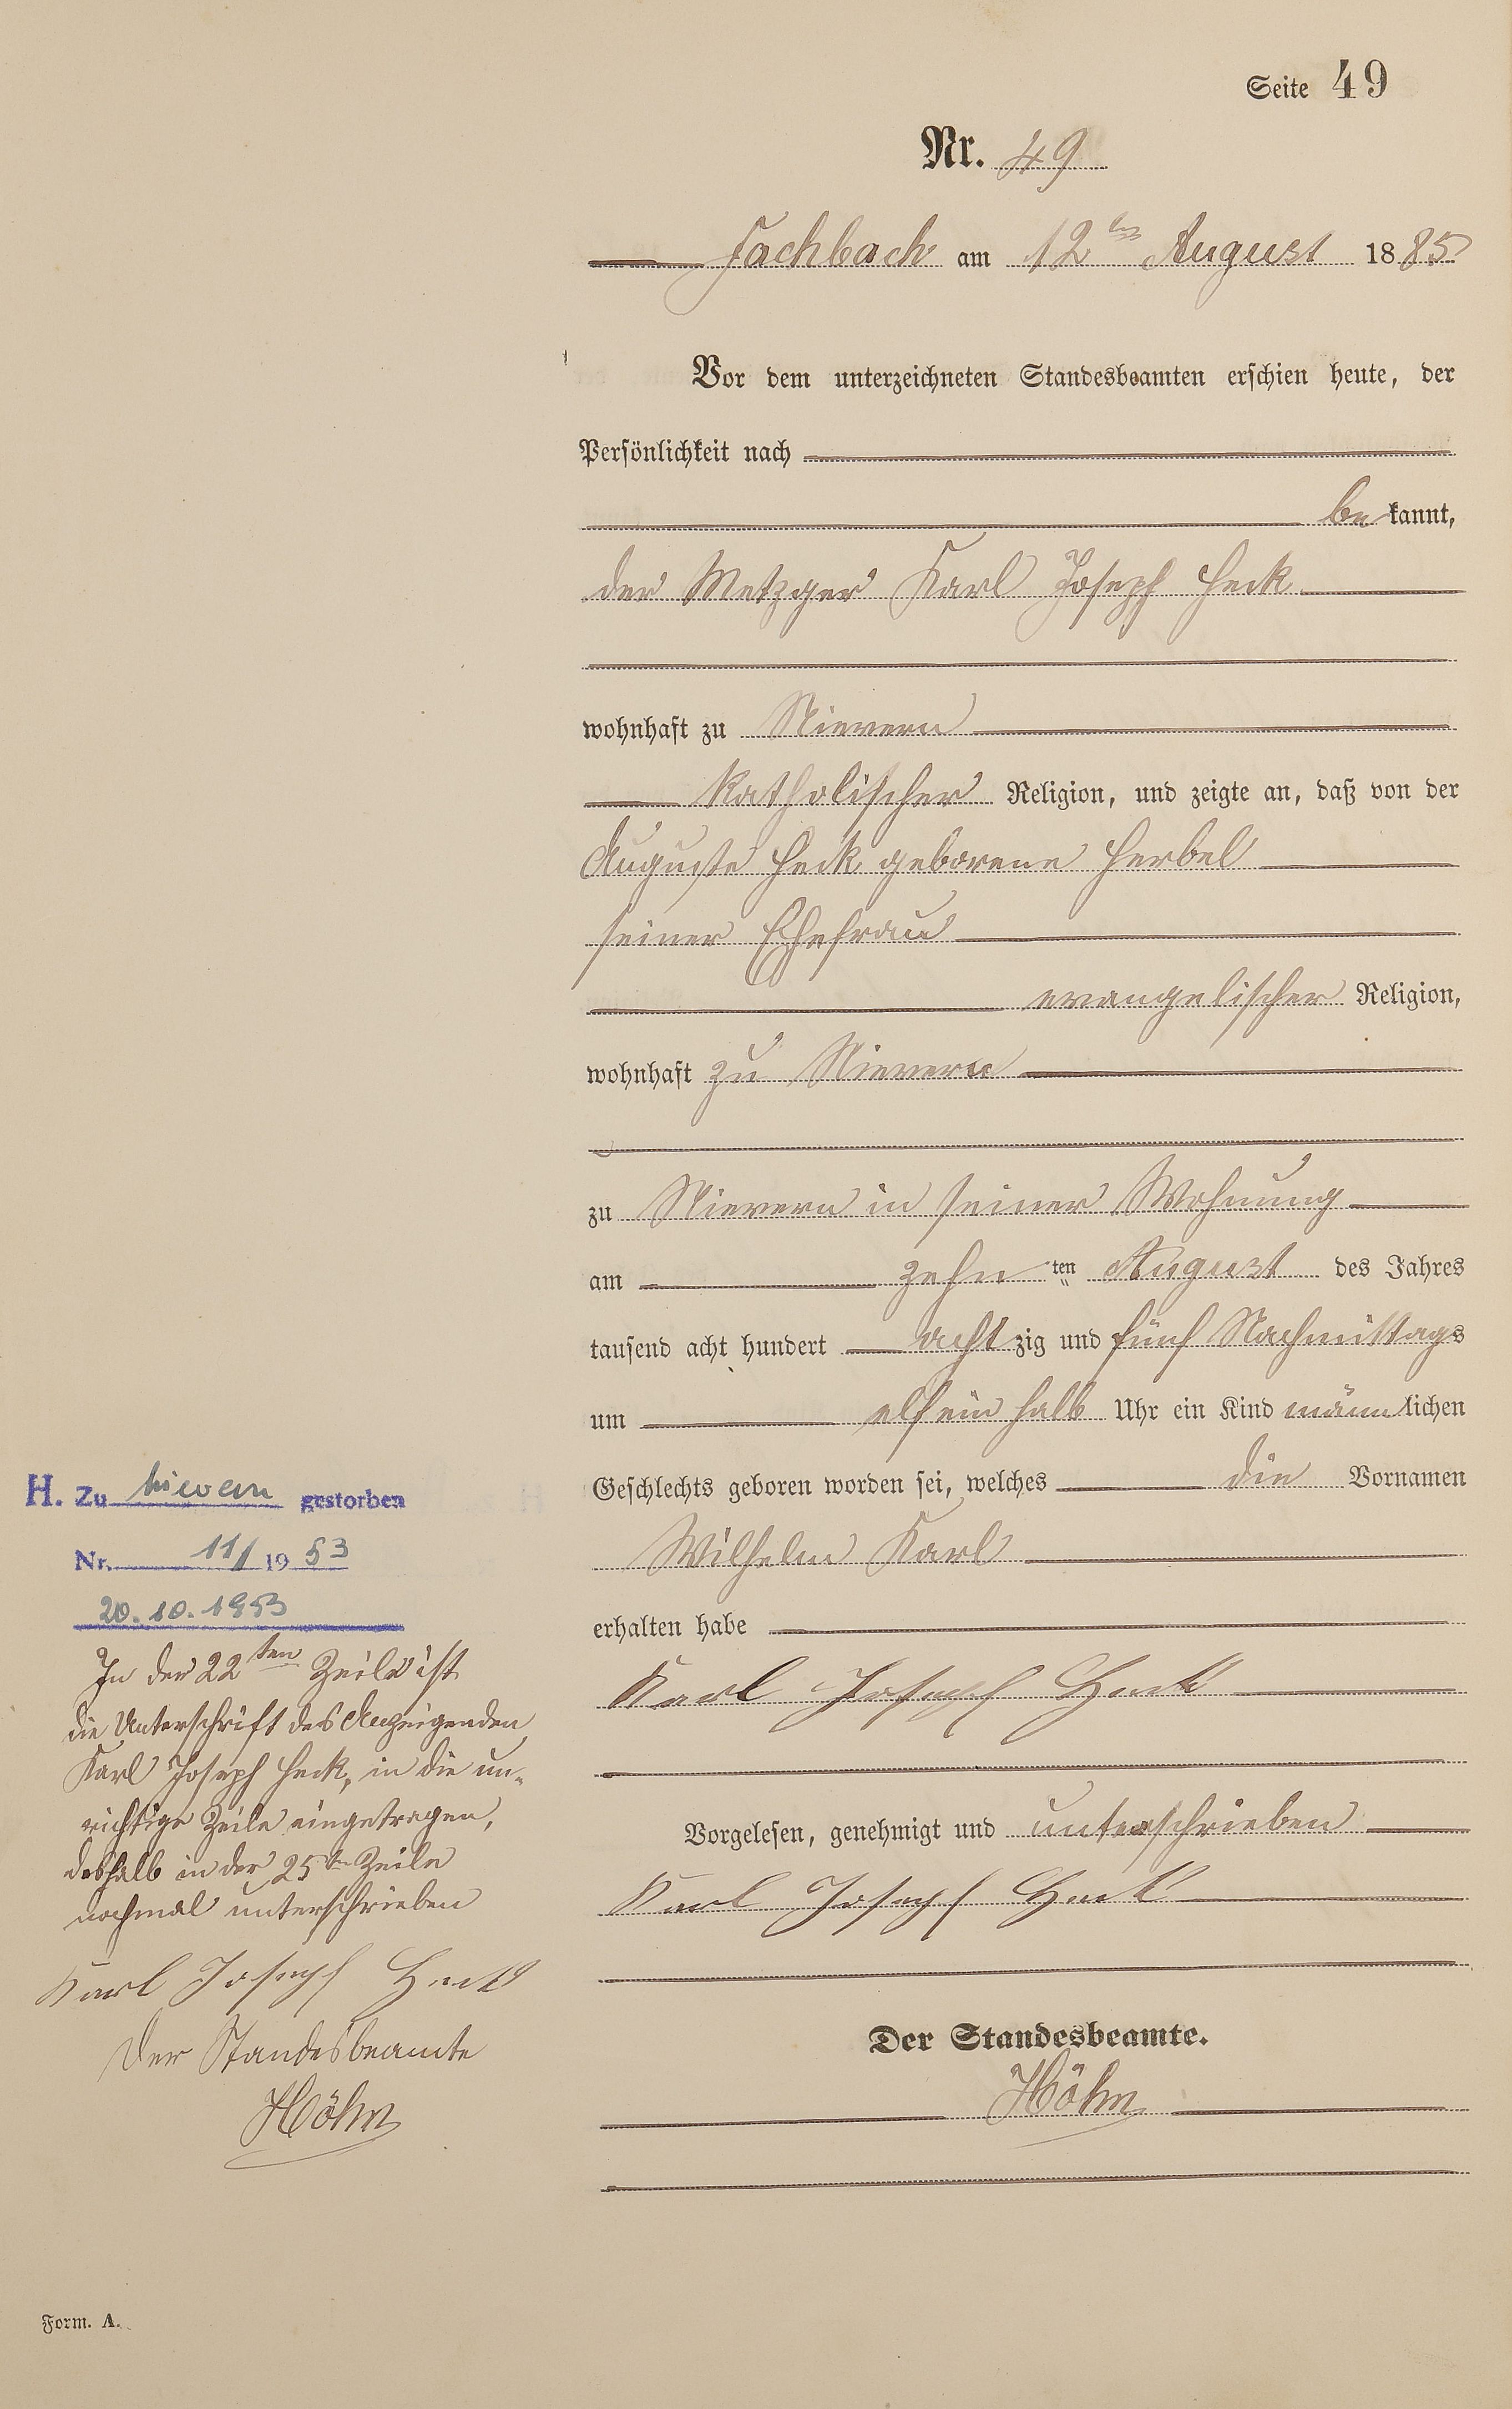 Seite 49
Nr. 49
Fachbach am 12ten August 1885
Vor dem unterzeichneten Standesbeamten erschien heute, der
Persönlichkeit nach
bekannt,
der Metzger Karl Joseph Heck
wohnhaft zu Nievern
katholischer Religion, und zeigte an, daß von der
Auguste Heck geborene Herbel
seiner Ehefrau
evangelischer Religion,
wohnhaft zu Nievern
zu Nievern in seiner Wohnung
am zehnten August des Jahres
tausend acht hundert achtzig und fünf Nachmittags
um elf ein halb Uhr ein Kind männlichen
Geschlechts geboren worden sei, welches die Vornamen
Wilhelm Karl
erhalten habe
Karl Joseph Heck
Vorgelesen, genehmigt und unterschrieben
Karl Joseph Heck
Der Standesbeamte.
Höhn
H. Zu Nievern gestorben
Nr. 11/1953
20.10.1953
In der 22ten Zeile ist
die Unterschrift des Anzeigenden
Karl Joseph Heck, in die un-
richtige Zeile eingetragen,
deshalb in der 25ten Zeile
nochmal unterschrieben
Karl Joseph Heck
Der Standesbeamte
Höhn
Form. A.